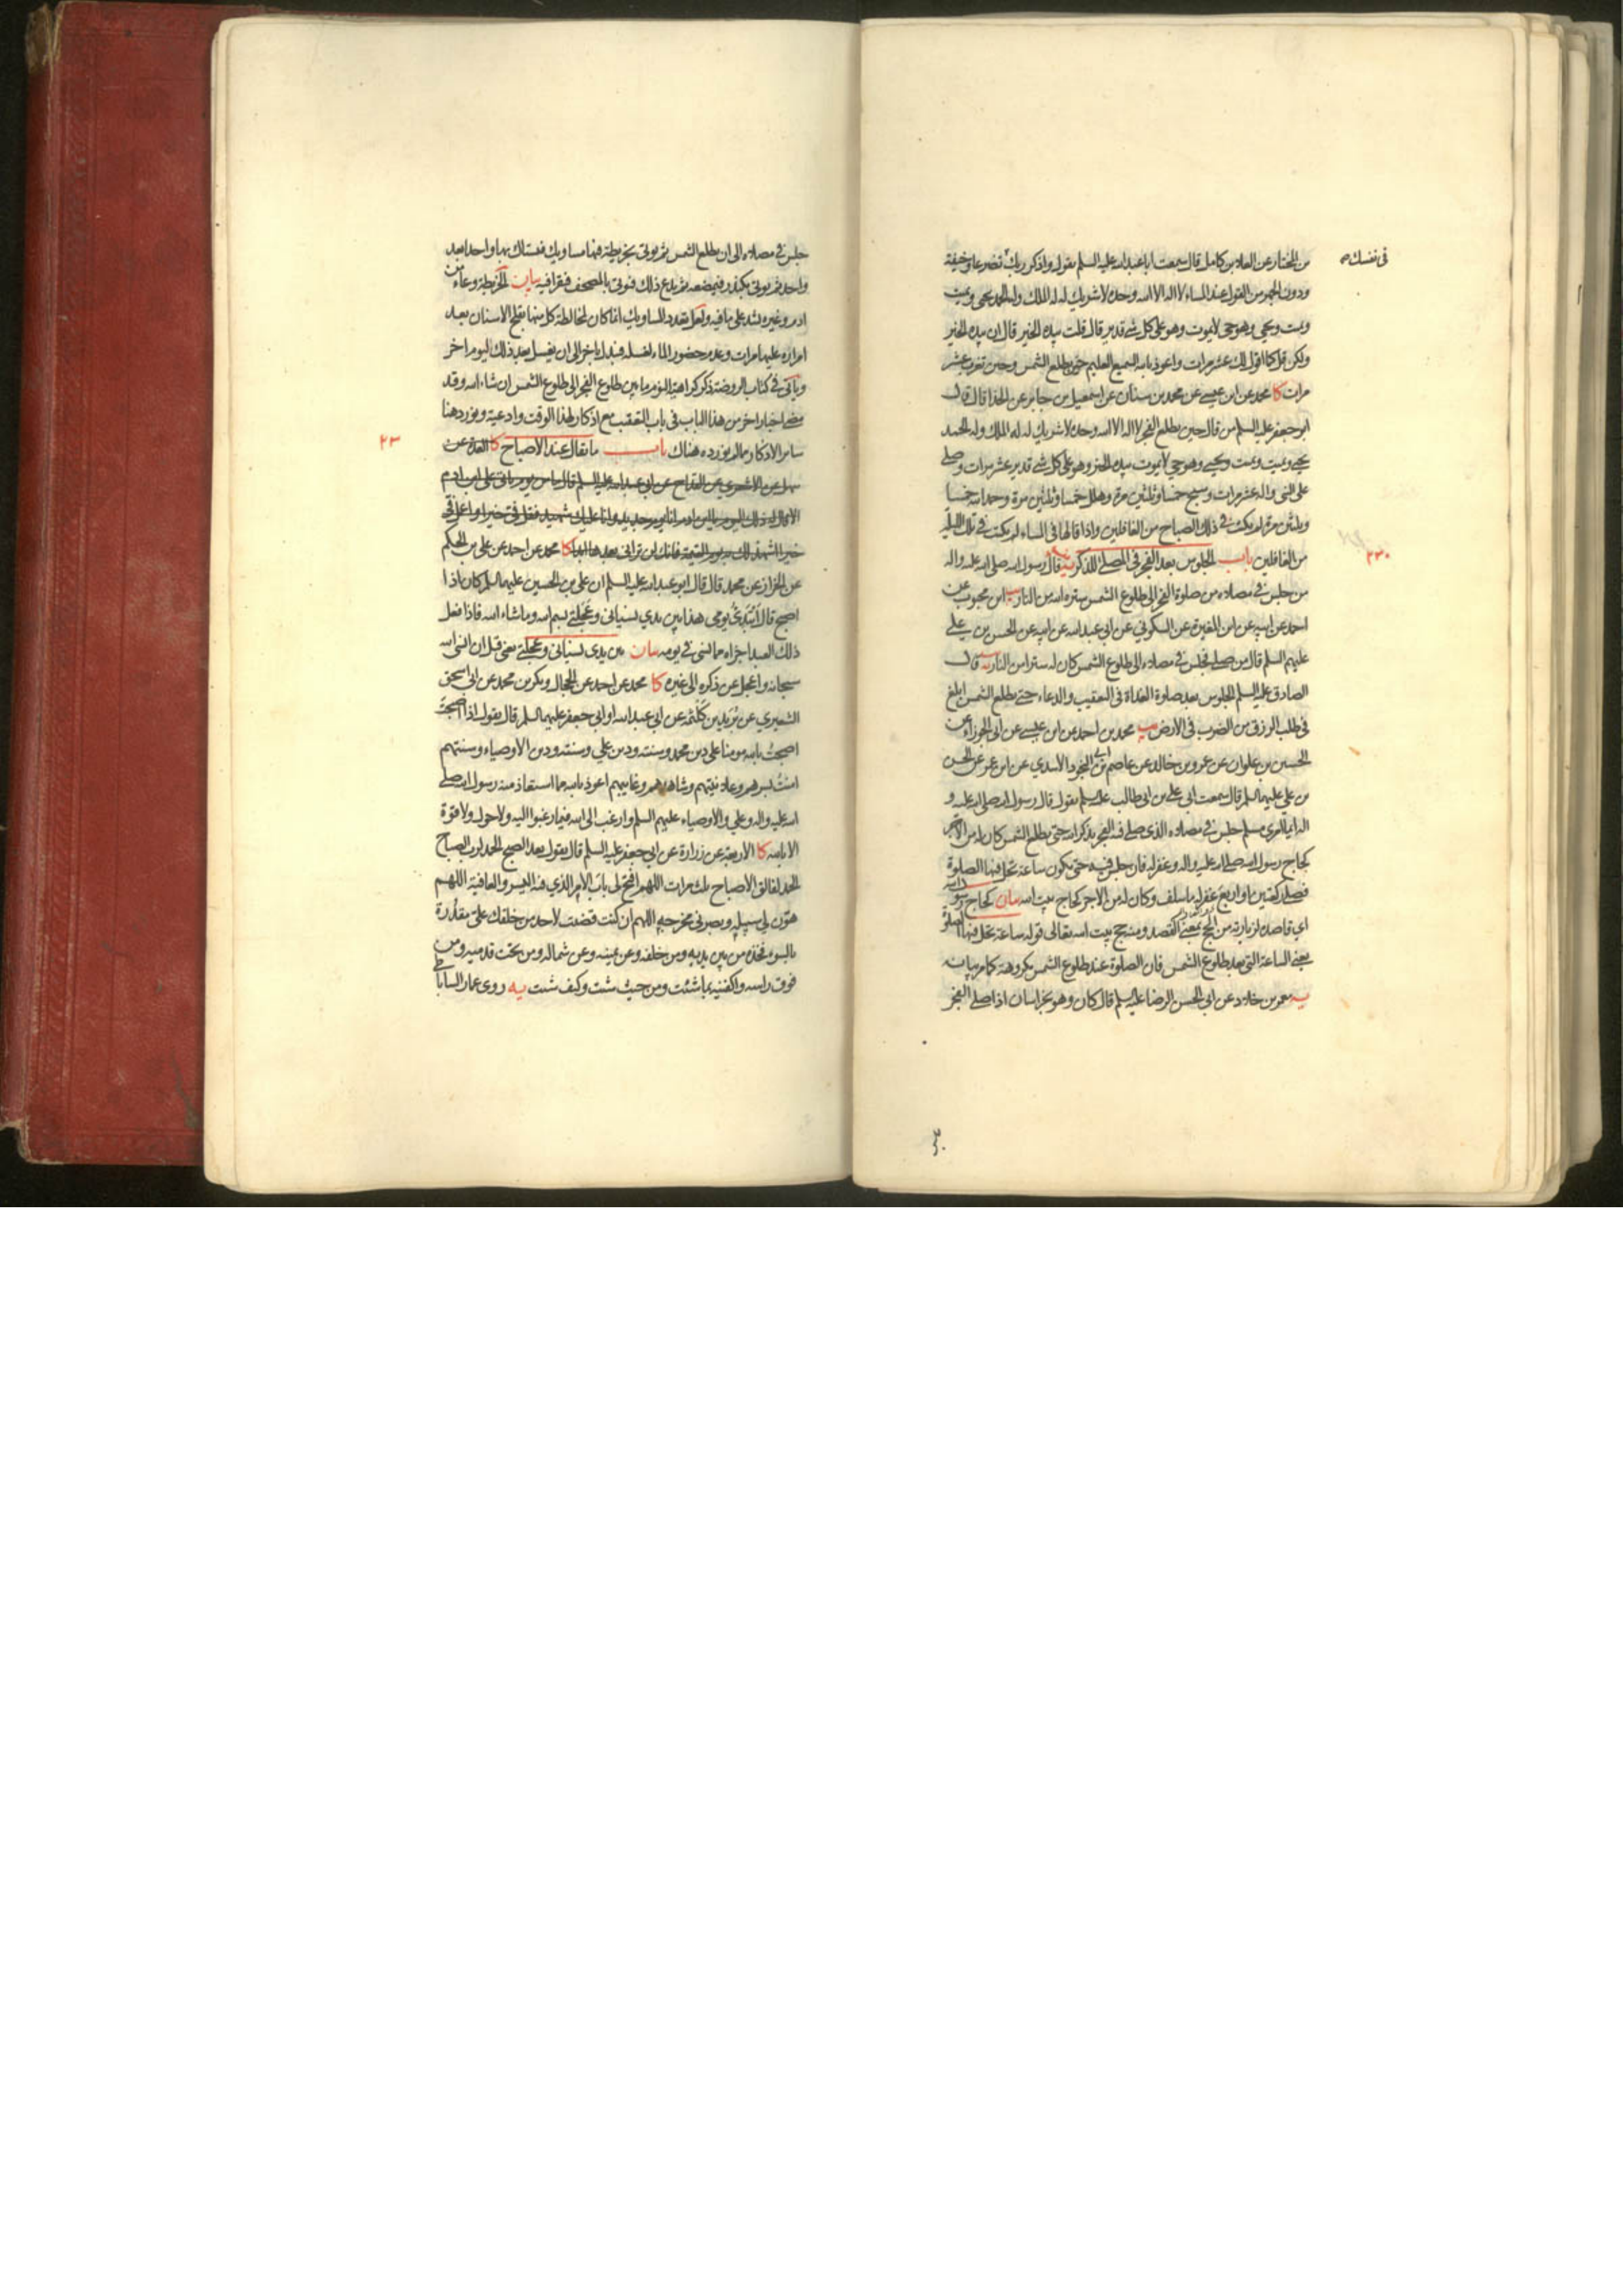 من المختار عن العلاء بن كامل قال سمعت ابا عبد الله عليه السلم يقول واذكر ربك تضرعا وخيفة
في نفسك
ودون الجهر من القول عند المساء لا اله الا الله وحده لا شريك له له الملك وله الحمد يحيي ويميت
ويميت ويحيي وهو حي لا يموت وهو على كل شي قدير قال قلت بيده الخير قال ان بيده الخير
ولكن قل كما اقول لك عشر مرات واعوذ بالله السميع العليم حين يطلع الشمس وحين تغرب عشر
مرات كا محمد عن ابن عيسى عن محمد بن سنان عن اسمعيل بن جابر عن الحذا قال قال
ابو جعفر عليه السلم من قال حين يطلع الفجر لا اله الا الله وحده لا شريك له له الملك وله الحمد
يحيي ويميت ويميت ويحيي وهو حي لا يموت بيده الخير وهو على كل شي قدير عشر مرات وصلى
على النبي واله عشر مرات وسبح خمسا وثلثين مرة وهلل خمسا وثلثين مرة وحمد الله خمسا
وثلثين مرة لم يكتب في ذلك الصباح من الغافلين واذا قالها في المساء لم يكتب في تلك الليلة
من الغافلين باب الجلوس بعد الفجر في المصلى للذكر يه قال رسول الله صلى الله عليه واله
٢٣٠
من جلس في مصلاه من صلوة الفجر الى طلوع الشمس ستره الله من النار يب ابن محبوب عن
احمد عن ابيه عن ابن المغيرة عن السكوني عن ابي عبد الله عن ابيه عن الحسن بن علي
عليهم السلم قال من صلى فجلس في مصلاه الى طلوع الشمس كان له سترا من النار يه قال
الصادق عليه السلم الجلوس بعد صلوة الغداة في التعقيب والدعاء حتى يطلع الشمس ابلغ
في طلب الرزق من الضرب في الارض يب محمد بن احمد عن ابن عيسى عن ابي الجوزاء عن
الحسين بن علوان عن عمرو بن خالد عن عاصم بن ابي النجود الاسدي عن ابن عمر عن الحسن
بن علي عليهما السلم قال سمعت ابي علي بن ابي طالب عليه السلم يقول قال رسول الله صلى الله عليه و
اله ايما امرئ مسلم جلس في مصلاه الذي صلى فيه الفجر يذكر الله حتى يطلع الشمس كان له من الاجر
كحاج رسول الله صلى الله عليه واله وغفر له فان جلس فيه حتى تكون ساعة تحل فيها الصلوة
فصلى ركعتين او اربع غفر له ما سلف وكان له من الاجر كحاج بيت الله بيان كحاج رسول الله
اي قاصده لزيارته من الحج بمعنى القصد ومنه حج بيت الله تعالى قوله ساعة تحل فيها الصلوة
يعني الساعة التي بعد طلوع الشمس فان الصلوة عند طلوع الشمس مكروهة كما مر بيانه
يه معمر بن خلاد عن ابي الحسن الرضا عليه السلم قال كان وهو بخراسان اذا صلى الفجر
جلس في مصلاه الى ان يطلع الشمس ثم يؤتى بخريطة فيها مساويك فيستاك بها واحدا بعد
واحد ثم يؤتى بكندر فيمضغه ثم يدع ذلك فيؤتى بالمصحف فيقرا فيه بيان الخريطة وعاء من
ادم وغيره يشد على ما فيه ولعل تعدد المساويك انما كان لمخالطة كل منها بقلح الاسنان بعد
امراره عليها مرات وعدم حضور الماء لغسله فيبدل باخر الى ان يغسل بعد ذلك ليوم اخر
وياتي في كتاب الروضة ذكر كراهية النوم ما بين طلوع الفجر الى طلوع الشمس ان شاء الله وقد
مضى اخبار اخر من هذا الباب في باب التعقيب مع اذكار لهذا الوقت وادعية ونورد هنا
ساير الاذكار مما لم نورده هناك باب ما يقال عند الاصباح كا العدة عن
٢٣
سهل عن الاشعري عن القداح عن ابي عبد الله عليه السلم قال ما من يوم ياتي على ابن ادم
الا قال له ذلك اليوم يا ابن ادم انا يوم جديد وانا عليك شهيد فقل في خيرا واعمل في
خيرا اشهد لك به يوم القيمة فانك لن تراني بعدها ابدا كا محمد عن احمد عن علي بن الحكم
عن الخزاز عن محمد قال قال ابو عبد الله عليه السلم ان علي بن الحسين عليهما السلم كان اذا
اصبح قال ابتدئ يومي هذا بين يدي نسياني وعجلتي بسم الله وما شاء الله فاذا فعل
ذلك العبد اجزاه مما نسي في يومه بيان بين يدي نسياني وعجلتي يعني قبل ان انسى الله
سبحانه واعجل عن ذكره الى غيره كا محمد عن احمد عن الحجال وبكر بن محمد عن ابي اسحق
الشعيري عن يزيد بن كلثمه عن ابي عبد الله او ابي جعفر عليهما السلم قال يقول اذا اصبحت
اصبحت بالله مومنا على دين محمد وسنته ودين علي وسنته ودين الاوصياء وسنتهم
امنت بسرهم وعلانيتهم وشاهدهم وغايبهم اعوذ بالله مما استعاذ منه رسول الله صلى
الله عليه واله وعلي والاوصياء عليهم السلم وارغب الى الله فيما رغبوا اليه ولا حول ولا قوة
الا بالله كا الاربعة عن زرارة عن ابي جعفر عليه السلم قال يقول بعد الصبح الحمد لرب الصباح
الحمد لفالق الاصباح ثلث مرات اللهم افتح لي باب الامر الذي فيه اليسر والعافية اللهم
هون لي سبيله وبصرني مخرجه اللهم ان كنت قضيت لاحد من خلقك علي مقدرة
بالسوء فخذه من بين يديه ومن خلفه وعن يمينه وعن شماله ومن تحت قدميه ومن
فوق راسه واكفنيه بما شئت ومن حيث شئت وكيف شئت يه روى عمار الساباطي